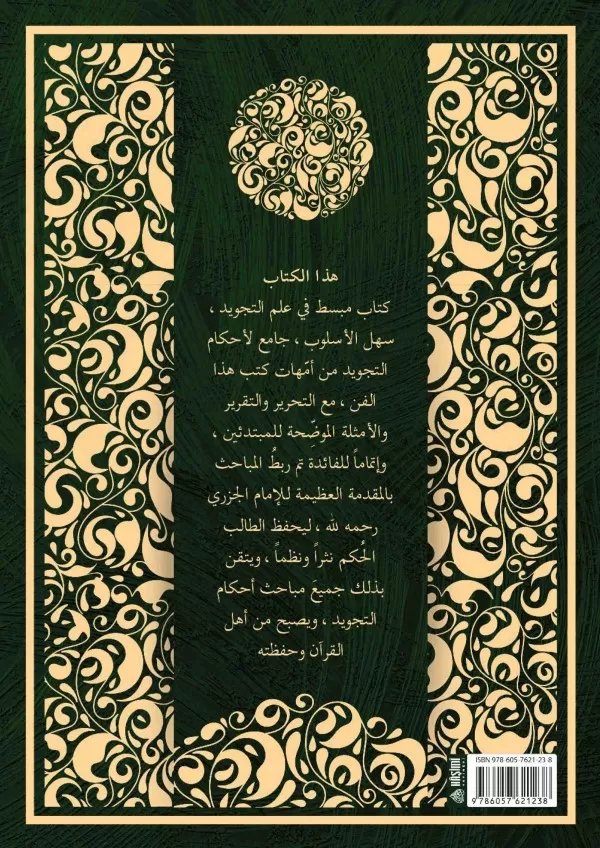 هذا الكتاب
كتاب مبسط في علم التجويد ،
سهل الأسلوب ، جامع لأحكام
التجويد من أمّهات كتب هذا
الفن ، مع التحرير والتقرير
والأمثلة الموضّحة للمبتدئين ،
وإتماماً للفائدة تم ربطُ المباحث
بالمقدمة العظيمة للإمام الجزري
رحمه لله ، ليحفظ الطالب
الحُكم نثراً ونظماً ، ويتقن
بذلك جميعَ مباحث أحكام
التجويد ، ويصبح من أهل
القرآن وحفظته
ISBN 978-605-7621-23-8
HAŞİMİ
9 786057 621238